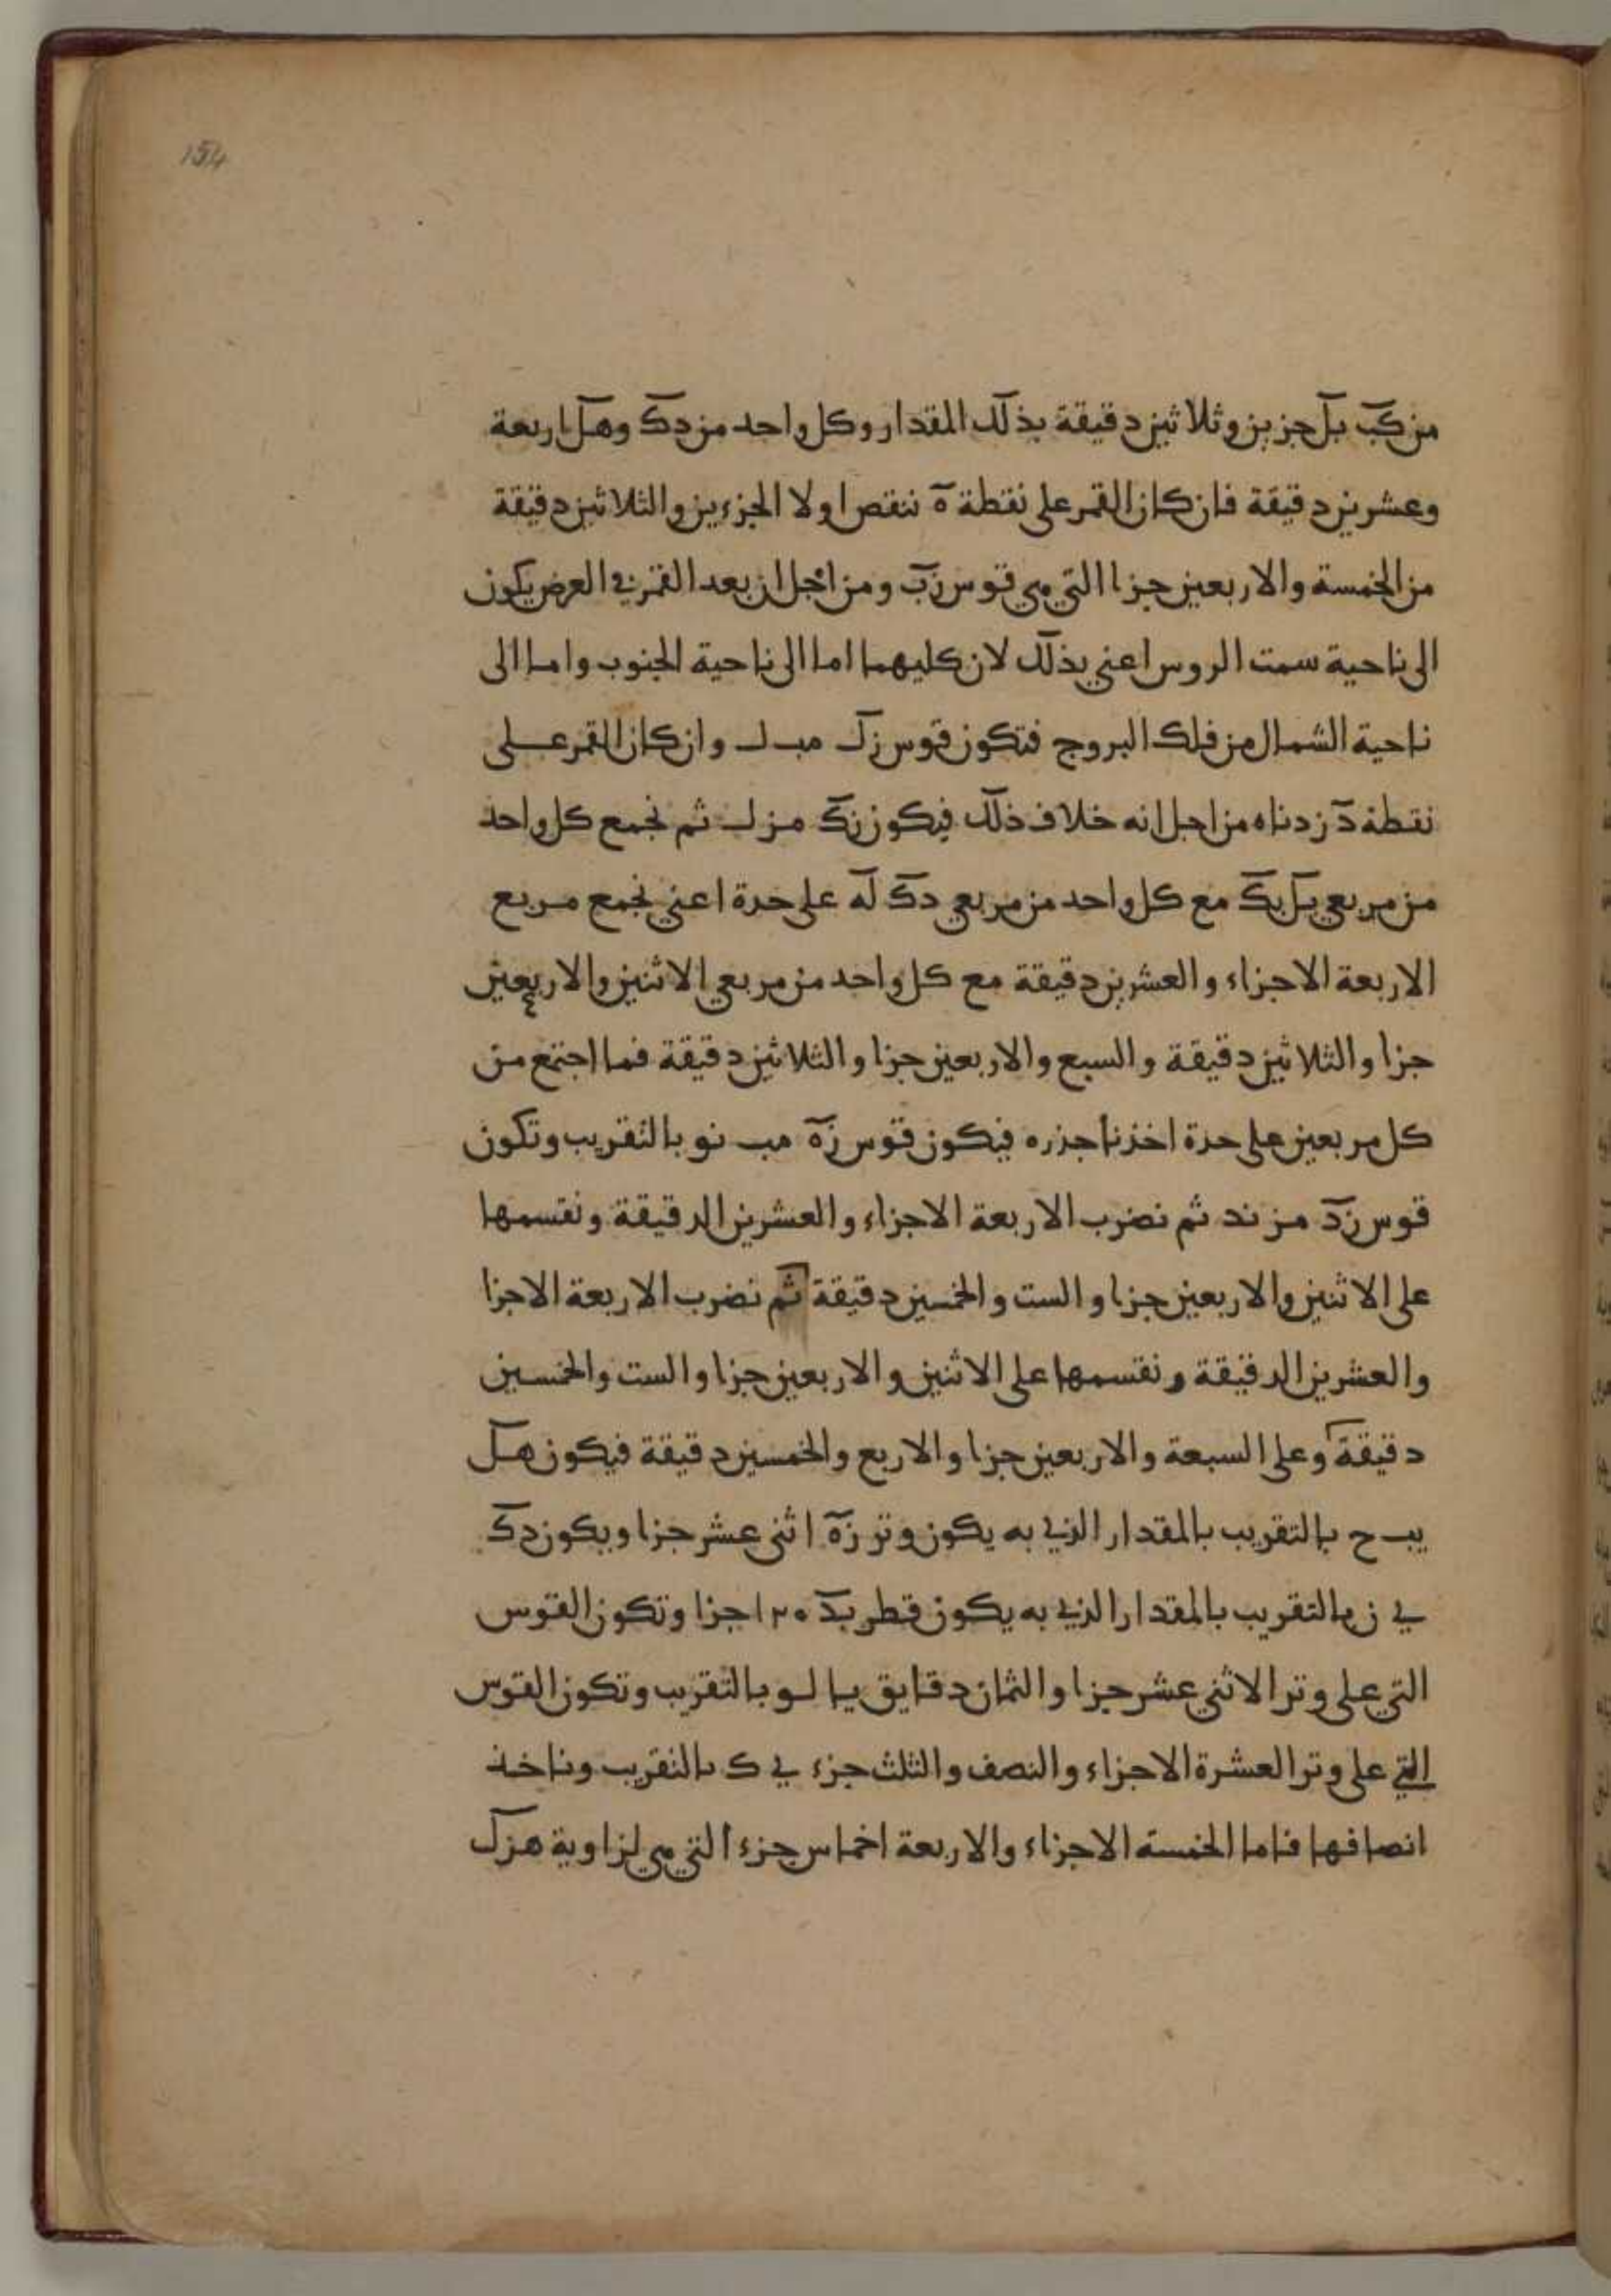 154
من كب بل جزين وثلاثين دقيقة بذلك المقدار وكل واحد من دك وهل اربعة
وعشرين دقيقة فان كان القمر على نقطة ه ننقص اولا الجزءين والثلاثين دقيقة
من الخمسة والاربعين جزا التي هي قوس زب ومن اجل ان بعد القمر في العرض يكون
الى ناحية سمت الروس اعني بذلك لان كليهما اما الى ناحية الجنوب واما الى
ناحية الشمال من فلك البروج فتكون قوس زل مب ل وان كان القمر على
نقطة د زدناه من اجل انه خلاف ذلك فيكون زك مز ل ثم نجمع كل واحد
من مربعي بل بك مع كل واحد من مربعي دك له على حدة اعني نجمع مربع
الاربعة الاجزاء والعشرين دقيقة مع كل واحد من مربعي الاثنين والاربعين
جزا والثلاثين دقيقة والسبع والاربعين جزا والثلاثين دقيقة فما اجتمع من
كل مربعين على حدة اخذنا جذره فيكون قوس زه مب نو بالتقريب وتكون
قوس زد مز ند ثم نضرب الاربعة الاجزاء والعشرين الدقيقة ونقسمها
على الاثنين والاربعين جزا والست والخمسين دقيقة ثم نضرب الاربعة الاجزا
والعشرين الدقيقة ونقسمها على الاثنين والاربعين جزا والست والخمسين
دقيقة وعلى السبعة والاربعين جزا والاربع والخمسين دقيقة فيكون هل
يب ح بالتقريب بالمقدار الذي به يكون وتر زه اثني عشر جزا ويكون دك
ي ن بالتقريب بالمقدار الذي به يكون قطر بد ١٢٠ جزا وتكون القوس
التي على وتر الاثني عشر جزا والثمان دقايق يا لو بالتقريب وتكون القوس
التي على وتر العشرة الاجزاء والنصف والثلث جزء ي ك بالتقريب وناخذ
انصافها فاما الخمسة الاجزاء والاربعة اخماس جزء التي هي لزاوية هزل